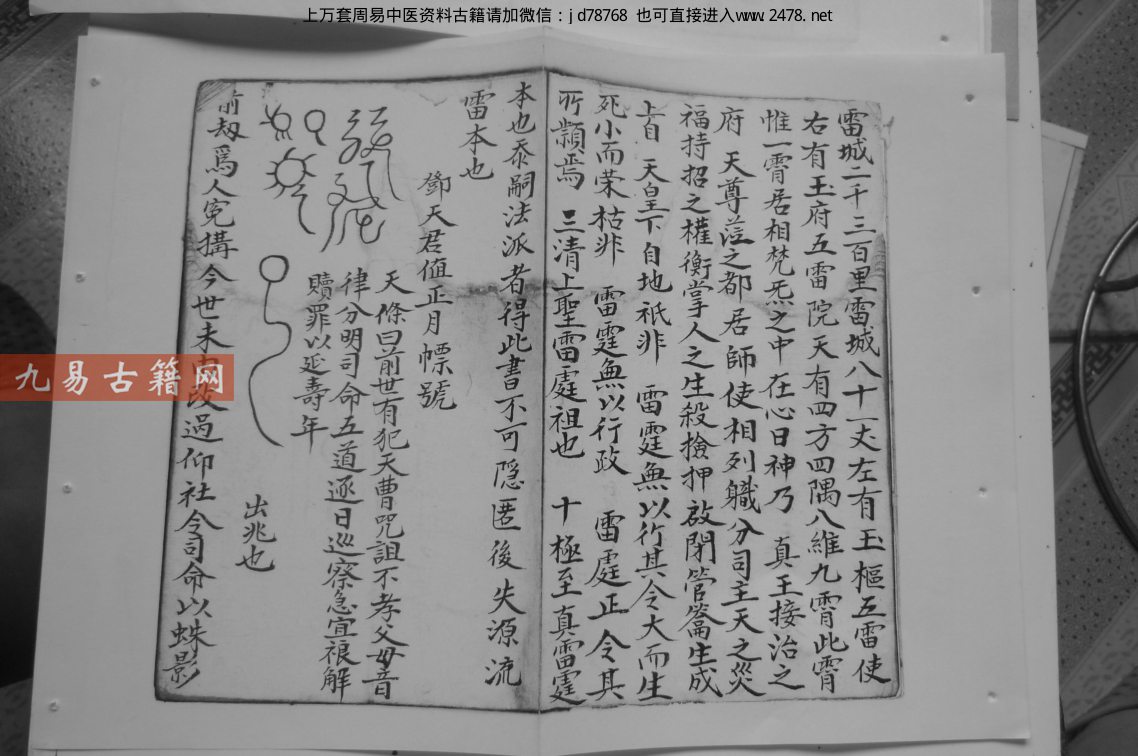 上万套周易中医资料古籍请加微信：jd78768 也可直接进入www.2478.net
雷城二千三百里雷城八十一丈左有玉樞五雷使
右有玉府五雷院天有四方四隅八維九霄此霄
惟一霄居相梵炁之中在心日神乃 真王接治之
府 天尊蒞之都居師使相列職分司主天之災
福持招之權衡掌人之生殺撿押啟閉管籥生成
上自 天皇下自地祇非 雷霆無以行其令大而生
死小而荣枯非 雷霆無以行政 雷霆正令其
所纇焉 三清上聖雷霆祖也 十極至真雷霆
本也忝嗣法派者得此書不可隐匿後失源流
雷本也
鄧天君值正月幖號
天條曰前世有犯天曹咒詛不孝父母音
律分明司命五道逐日巡察急宜禳解
贖罪以延壽年
出兆也
前刼爲人寃搆今世未 改過仰社令司命以蛛影
九易古籍网